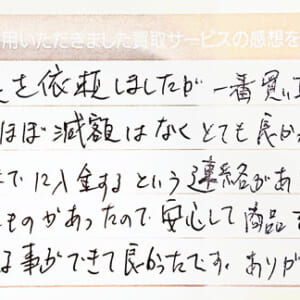 用いただきました買取サービスの感想を
を依頼しましたが 一番買い
ほぼ減額はなくとても良か
でに入金するという連絡があ
ものがあったので安心して商品
る事ができて良かったです。ありが